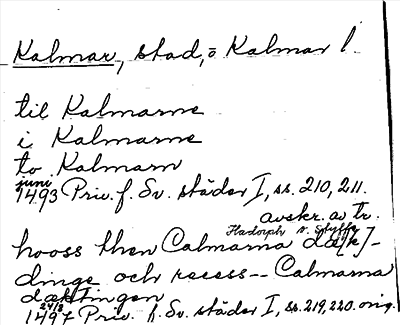 Kalmar, stad, ö Kalmar l.
til Kalmarne
i Kalmarne
to Kalmarn
juni
1493 Priv. f. Sv. städer I, ss. 210, 211.
avskr. av tr.
Hadorph o. Styffe
hooss then Calmarna da[k]-
dinge och recess-- Calmarna
daktingen
24/8
1497 Priv. f. Sv. städer I, ss. 219, 220. orig.